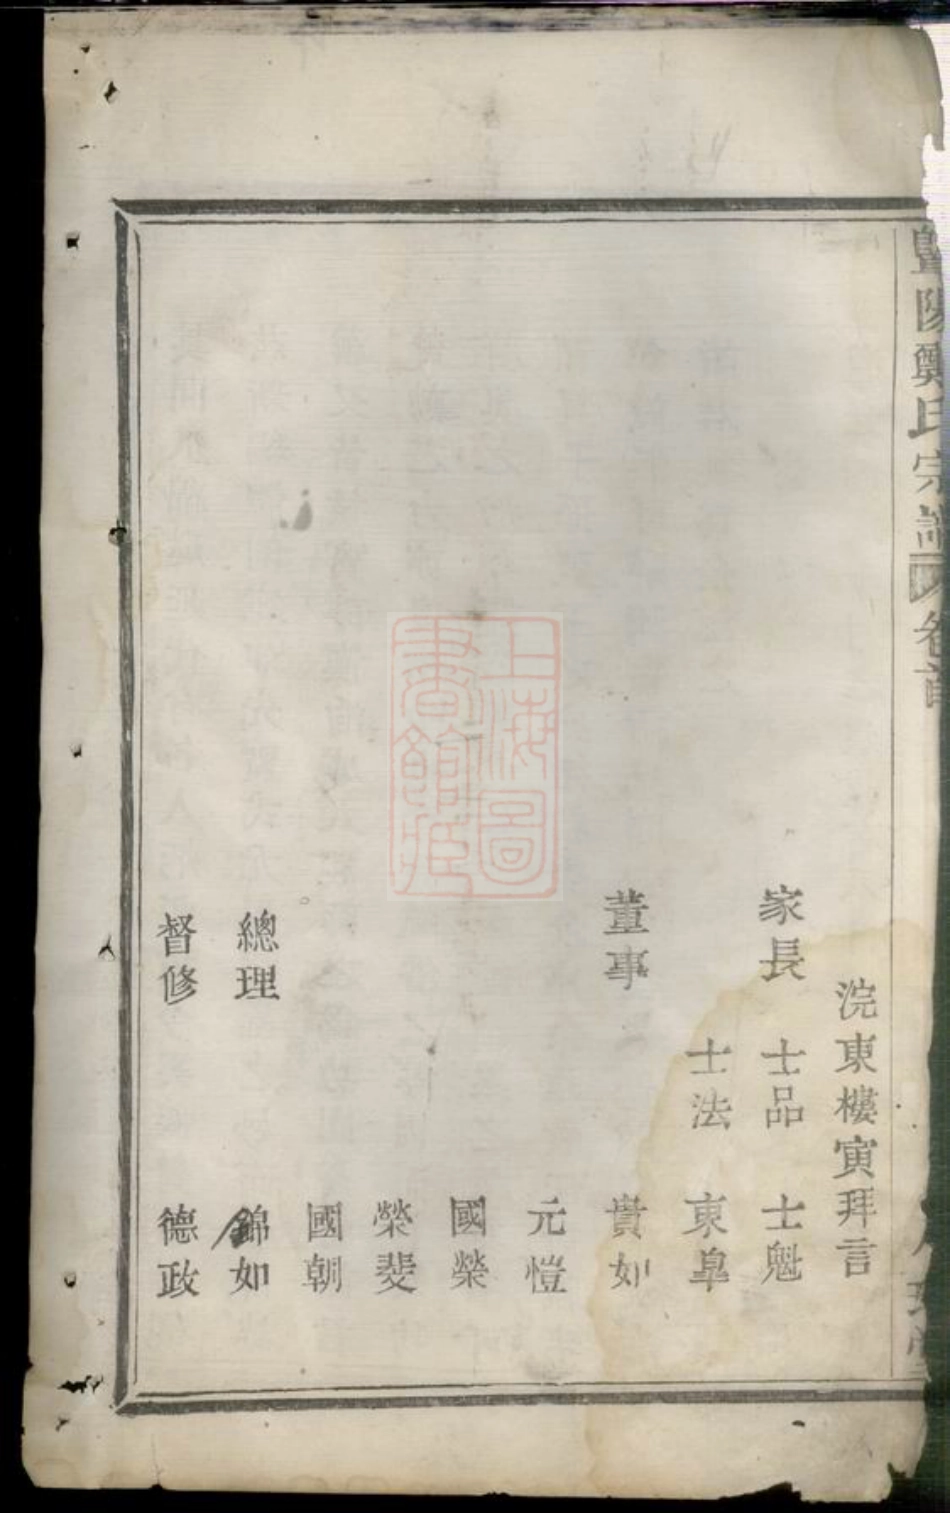 暨陽鄭氏宗譜 卷首
浣東樓寅拜言
家長 士品 士魁
士法 東臯
董事 貴如
元愷
國榮
榮斐
國朝
總理 錦如
督修 德政
上海圖書館藏